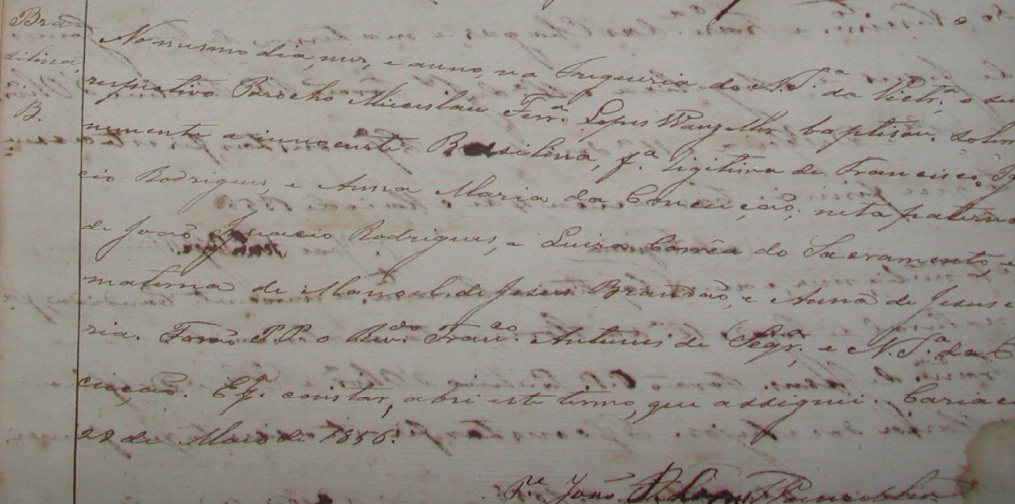 Bra
silina,
B.
No mesmo dia, mez, e anno, na Freguezia de N. S.ª da Victr.ª o seu
respectivo Parocho Miecislau Ferr.ª Lopes Wanzeller baptisou solem
nemente a innocente Brasilina, f.ª legitima de Francisco
cio Rodrigues, e Anna Maria da Conceição; neta paterna
de João Ignacio Rodrigues, e Luiza Corrêa do Sacramento, e
materna de Manoel de Jesus Brandão, e Anna de Jesus
ria. Forão P.P. o Rev.do Fran.co Antunes de Seqr.ª, e N. S.ª da
ceição. E p.ª constar, abri este termo, que assignei. Caria
29 de Maio de 1856.
P.e João